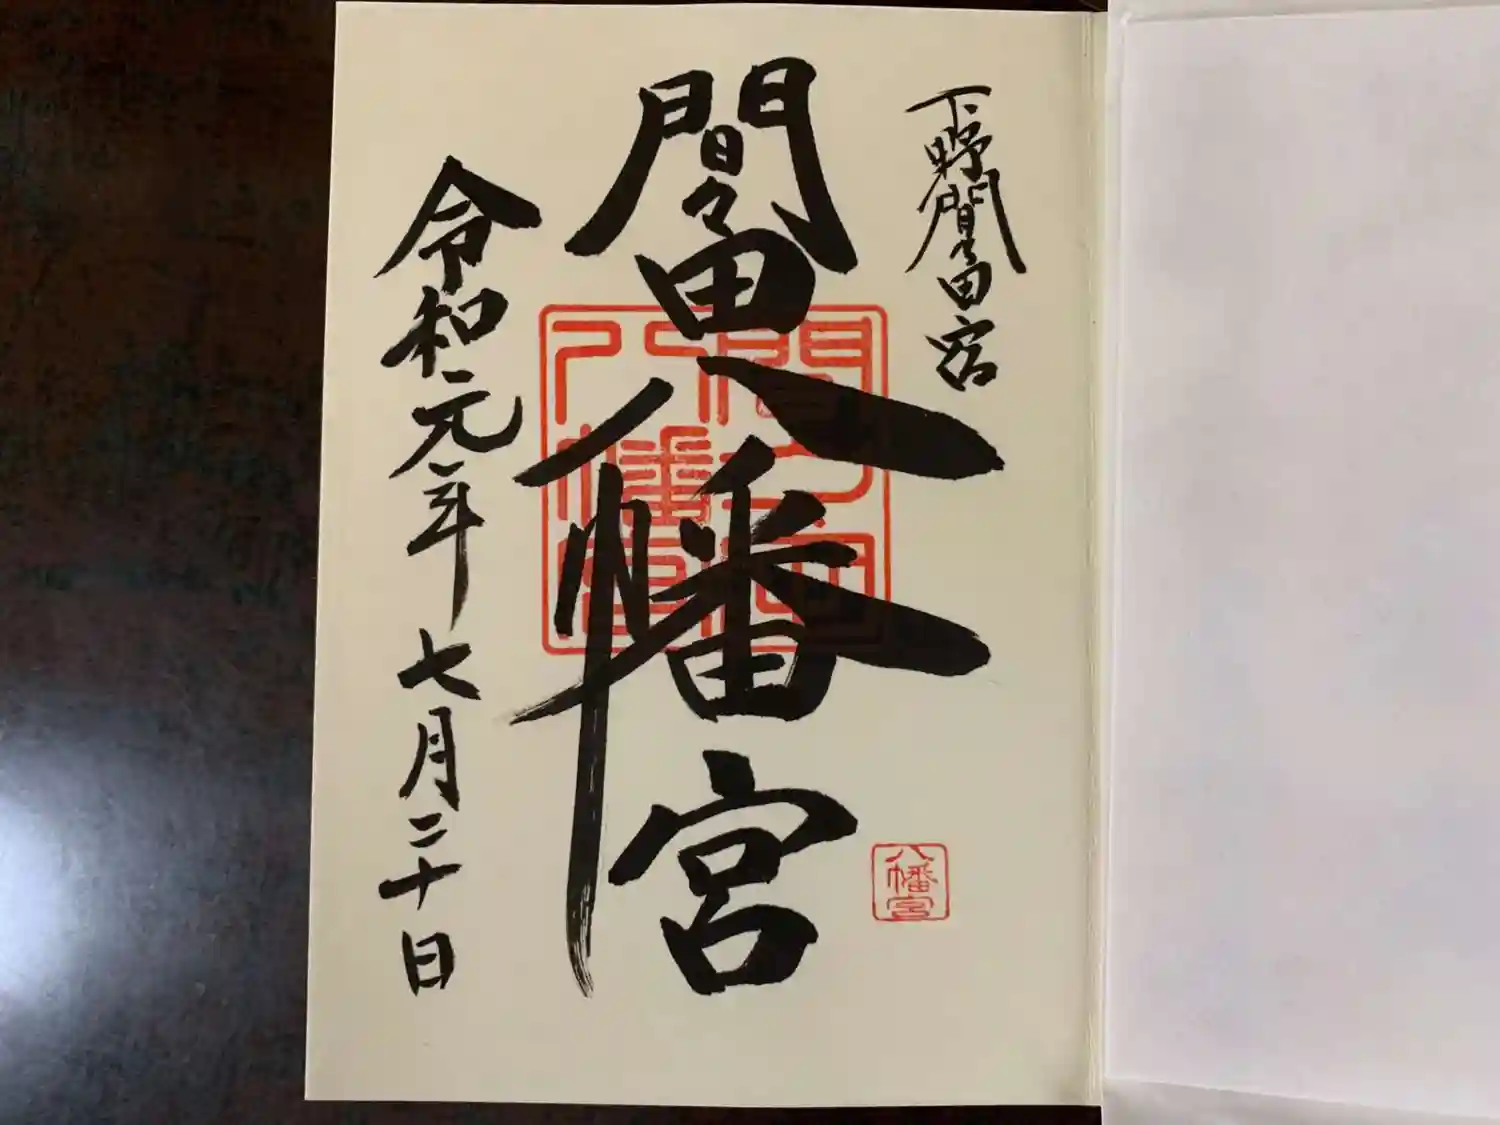 下野間々田宿
間々田八幡宮
八幡宮
間々田八幡宮
令和元年七月二十日